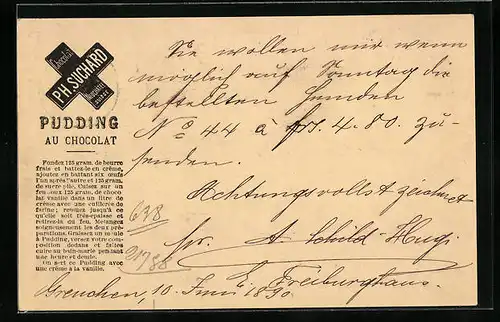 Chocolat
PH. SUCHARD
NEUCHATEL
SUISSE
PUDDING
AU CHOCOLAT
Fondez 125 gram. de beurre
frais et battez-le en crême,
ajoutez en battant six œufs
l'un après l'autre et 125 gram.
de sucre pilé. Cuisez sur un
feu doux 125 gram. de choco-
lat vanille dans un litre de
crême avec une cuillères de
farine; remuez jusqu'à ce
qu'elle soit très-épaisse et
retirez-la du feu. Mélangez
soigneusement les deux pré-
parations. Graissez un moule
à Pudding, versez votre com-
position dedans et faites
cuire au bain-marie pendant
une heure et demie.
On sert ce Pudding avec
une crême à la vanille.
Sie wollen mir wenn
möglich auf Sonntag die
bestellten Hemden
No 44 à frs. 4.80. zu-
senden.
Achtungsvollst zeichnet
638
21788
A. Schild-Hugi
Freiburghaus.
Grenchen, 10 Juni 1890